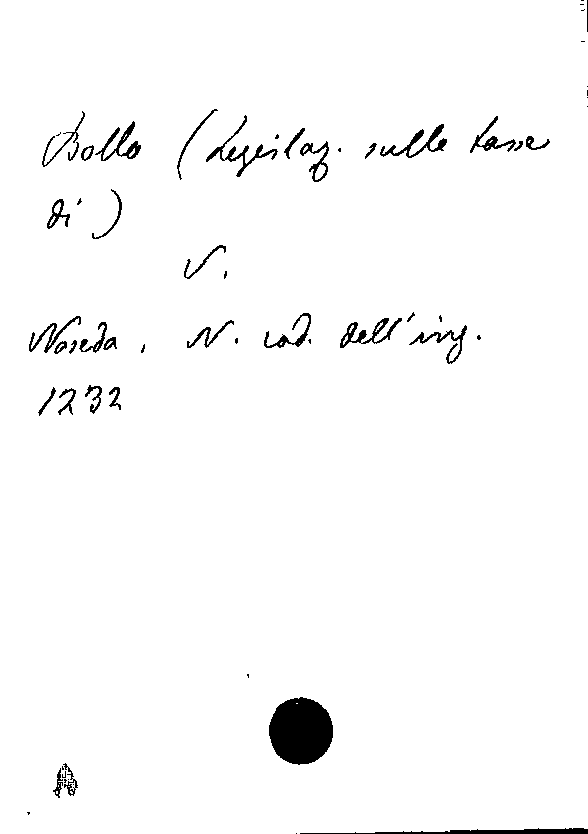 Bollo (Legislaz. sulle tasse
di)
V.
Noseda, N. cod. dell'ing.
1232